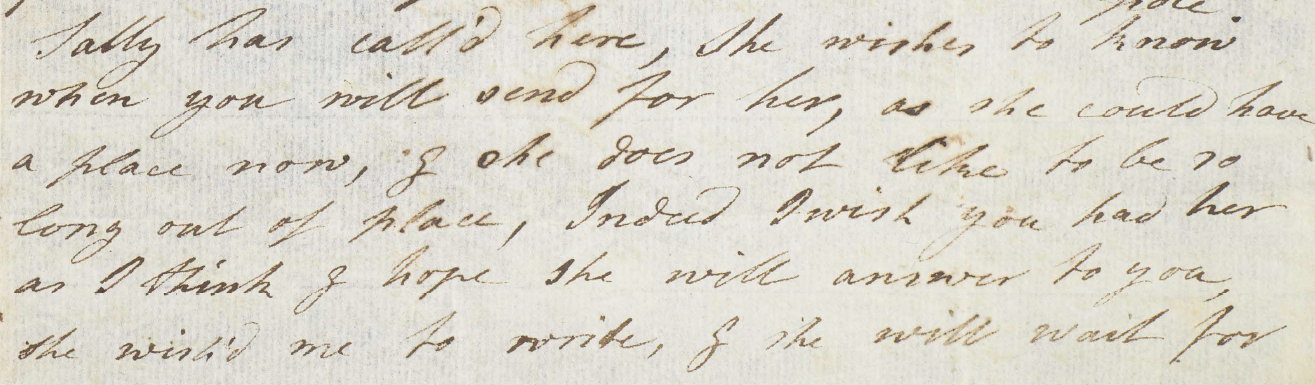 Sally has call'd here, She wishes to know
when you will send for her, as she could have
a place now, & she does not like to be so
long out of place, Indeed I wish you had her
as I think & hope she will answer to you,
she wish'd me to write, & she will wait for